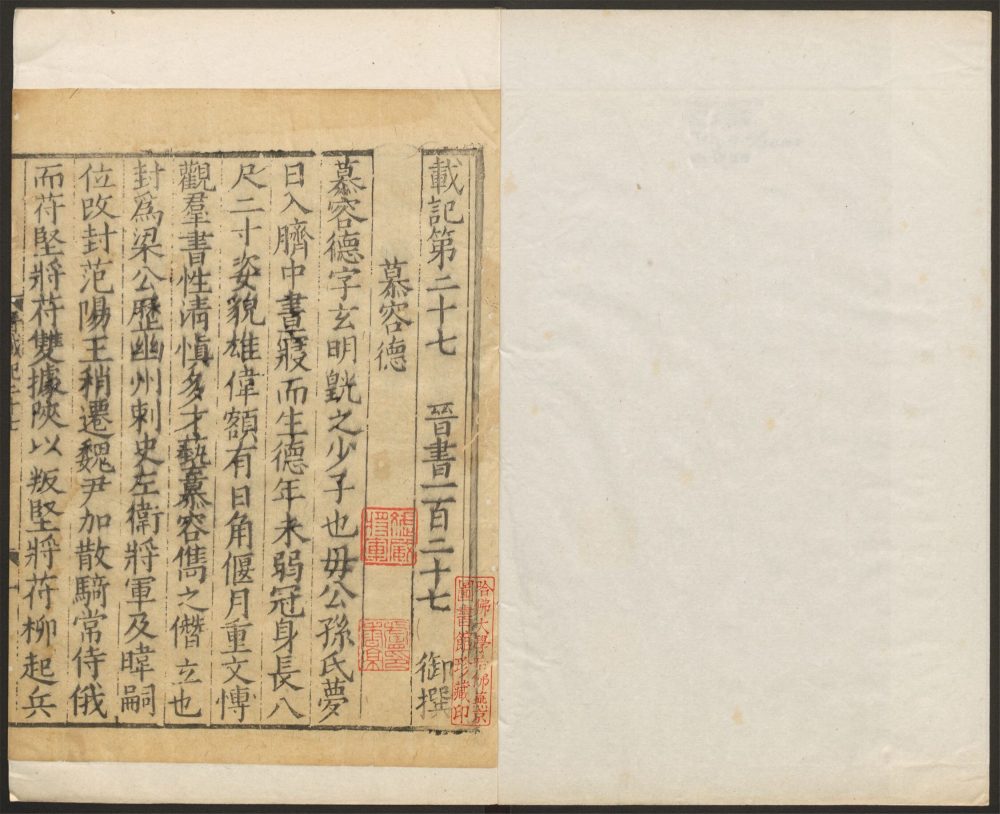 載記第二十七　晉書一百二十七　御撰
慕容德
慕容德字玄明皝之少子也毋公孫氏夢
日入臍中晝寢而生德年未弱冠身長八
尺二寸姿貌雄偉額有日角偃月重文慱
觀羣書性清慎多才藝慕容儁之僭立也
封爲梁公歷幽州刺史左衛將軍及暐嗣
位改封范陽王稍遷魏尹加散騎常侍俄
而苻堅將苻雙據陝以叛堅將苻柳起兵
哈佛大學哈佛燕京
圖書館珍藏印